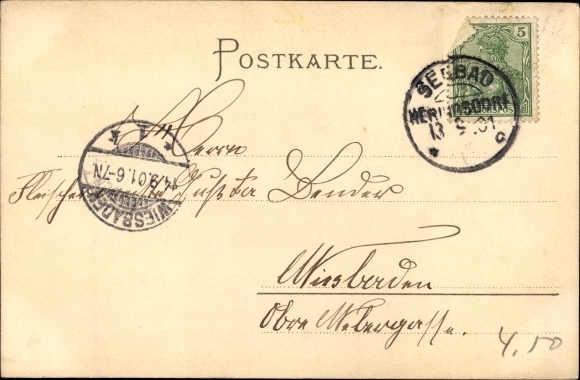 POSTKARTE.
5
SEEBAD
HERINGSDORF
13 9 01
c
Herrn
Fleischermeister Gust. Bender
WIESBADEN
14.9.01.6-7N
Wiesbaden
Obre Webergasse.
4.50